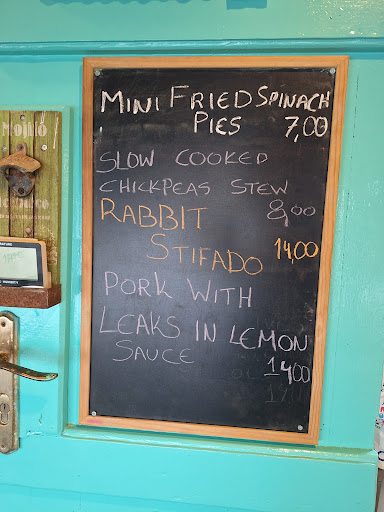 MINI FRIED SPINACH
PIES 7,00
SLOW COOKED
CHICKPEAS STEW
8,00
RABBIT
STIFADO 14,00
PORK WITH
LEAKS IN LEMON
SAUCE 14,00